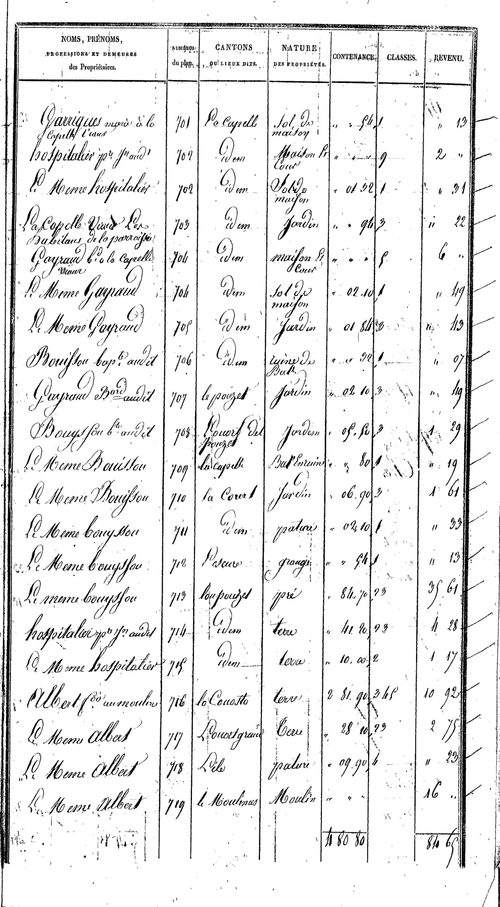 NOMS, PRÉNOMS, PROFESSIONS ET DEMEURES des Propriétaires. NUMÉROS du plan. CANTONS OU LIEUX DITS. NATURE DES PROPRIÉTÉS. CONTENANCE. CLASSES. REVENU.
Garrigues à la Capelle Viaur 701 La Capelle Sol de maison " " 54 1 " 13
hospitalier 702 idem Maison et Cour " " " 9 2 "
Le Meme hospitalier 702 idem Sol de maison " 01 32 1 " 31
La Capelle Viaur Les habitans de la paroisse 703 idem Jardin " " 94 3 " 22
Gayraud à la Capelle Viaur 704 idem maison et Cour " " " 5 6 "
Le Meme Gayraud 704 idem Sol de maison " 02 10 1 " 49
Le Meme Gayraud 705 idem Jardin " 01 84 3 " 43
Bouisson audit 706 idem " " 32 1 " 07
Gayraud audit 707 le pouzet Jardin " 02 10 3 " 49
Bouyssou audit 708 pouzet Jardin " 05 52 3 1 29
Le Meme Bouissou 709 la Capelle " " 80 1 " 19
Le Meme Bouissou 710 la Court Jardin " 06 90 3 1 61
Le Meme bouyssou 711 idem pature " 02 10 1 " 33
Le Meme bouyssou 712 grange " " 54 1 " 13
Le meme bouyssou 713 lou pouzet pré " 84 70 23 35 61
hospitalier audit 714 idem terre " 41 20 23 4 28
Le Meme hospitalier 715 idem terre " 10 00 2 1 17
Albert au moulin 716 la Couosto terre 2 81 90 345 10 92
Le Meme Albert 717 Terre " 28 10 23 2 75
Le Meme Albert 718 L'ile pature " 09 90 4 " 23
Le Meme Albert 719 le Moulinas Moulin " " " 16 "
4 80 80 84 65